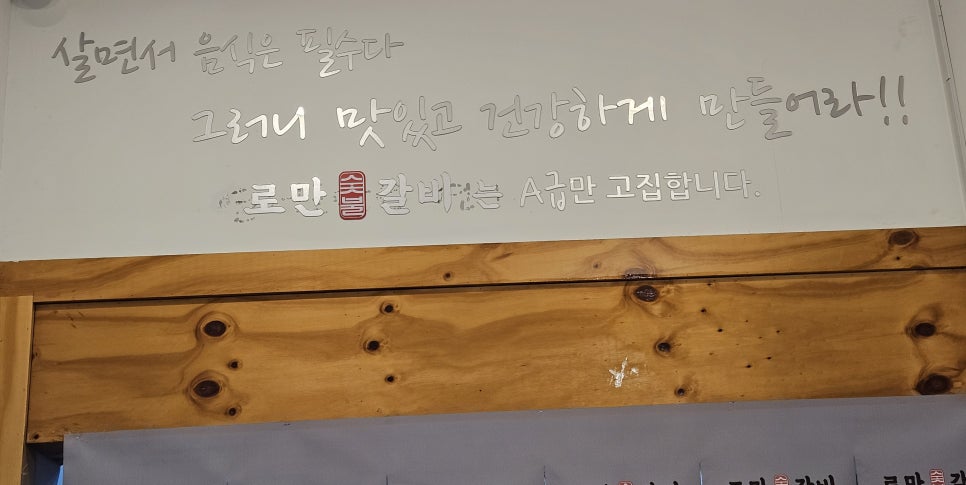 살면서 음식은 필수다
그러니 맛있고 건강하게 만들어라!!
로만 숯불 갈비는 A급만 고집합니다.
로만 숯불 갈비
로만 숯불 갈